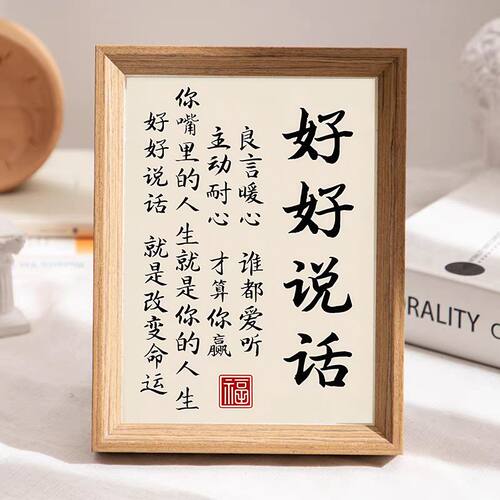 好好说话
良言暖心 谁都爱听
主动耐心 才算你赢
你嘴里的人生就是你的人生
好好说话 就是改变命运
福
RALITY